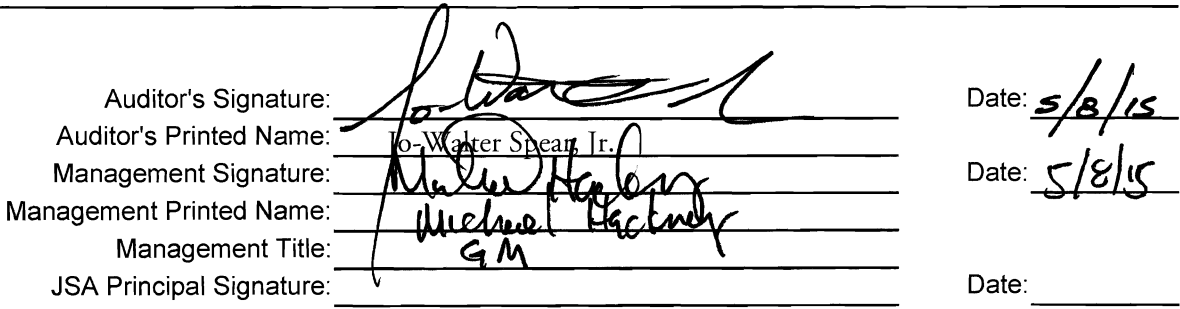 Auditor's Signature: Date: 5/8/15
Auditor's Printed Name: Jo-Walter Spear, Jr.
Management Signature: Date: 5/8/15
Management Printed Name: Michael Hackney
Management Title: GM
JSA Principal Signature: Date: